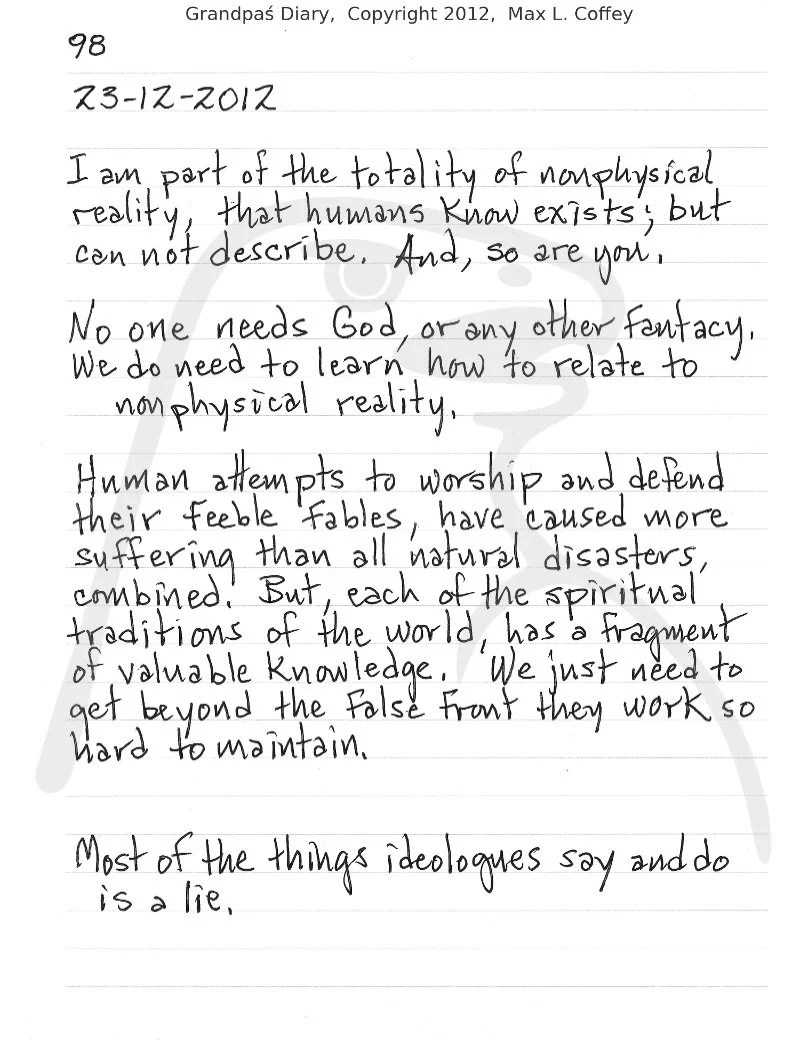 Grandpaś Diary, Copyright 2012, Max L. Coffey
98
23-12-2012
I am part of the totality of nonphysical
reality, that humans know exists; but
can not describe. And, so are you.
No one needs God, or any other fantacy.
We do need to learn how to relate to
nonphysical reality.
Human attempts to worship and defend
their feeble fables, have caused more
suffering than all natural disasters,
combined. But, each of the spiritual
traditions of the world, has a fragment
of valuable knowledge. We just need to
get beyond the false front they work so
hard to maintain.
Most of the things ideologues say and do
is a lie.